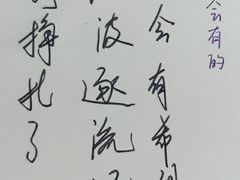 会有的
会有希
波逐流
挣扎了